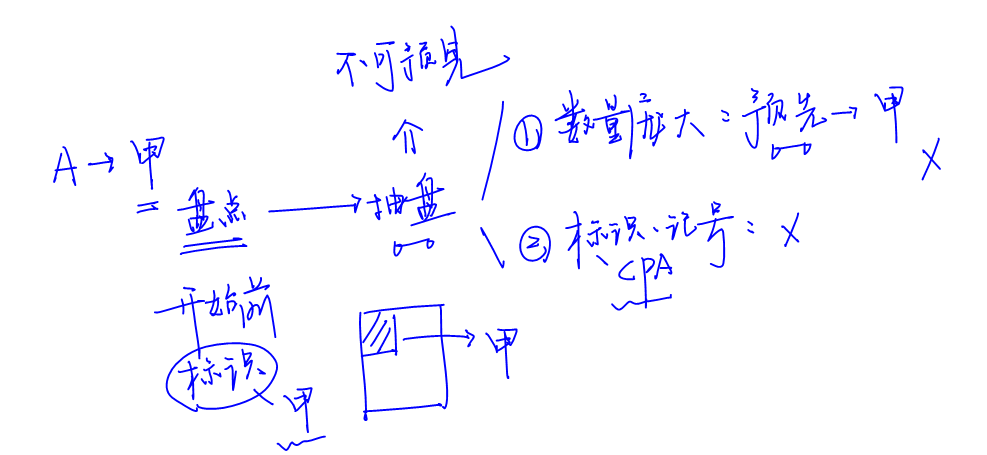 不可预见
A → 甲
盘点 → 抽盘
① 数量庞大：预先 → 甲 ×
② 标识、记号：×
CPA
开始前
标识
甲
→ 甲